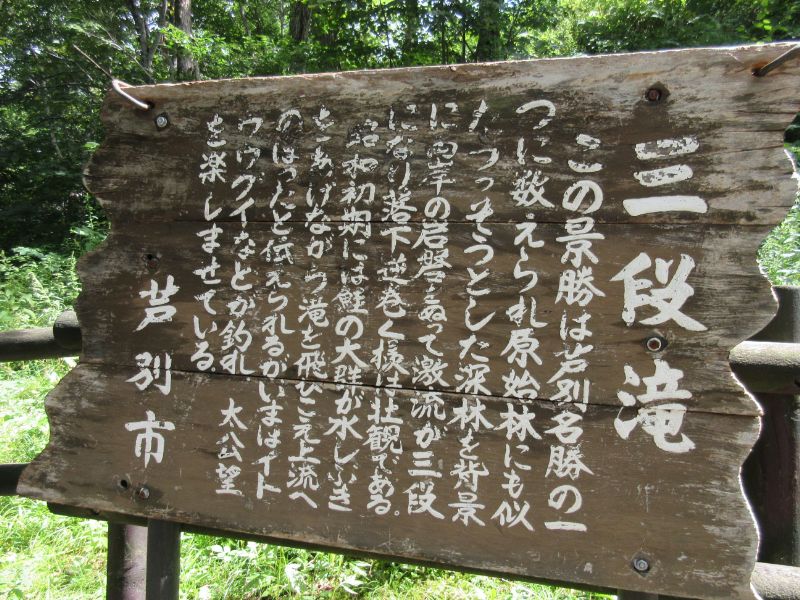 三段滝
この景勝は芦別名勝の一
つに数えられ原始林にも似
たうっそうとした深林を背景
に両岸の岩盤をぬって激流が三段
になり落下逆巻く様は壮観である.
昭和初期には鮭の大群が水しぶき
をあげながら滝を飛びこえ上流へ
のぼったと伝えられるがいまはイト
ウウグイなどが釣れ. 太公望
を楽しませている.
芦別市